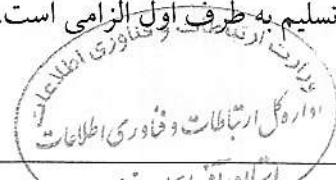 تسلیم به طرف اول الزامی است.
وزارت ارتباطات و فناوری اطلاعات
اداره کل ارتباطات و فناوری اطلاعات